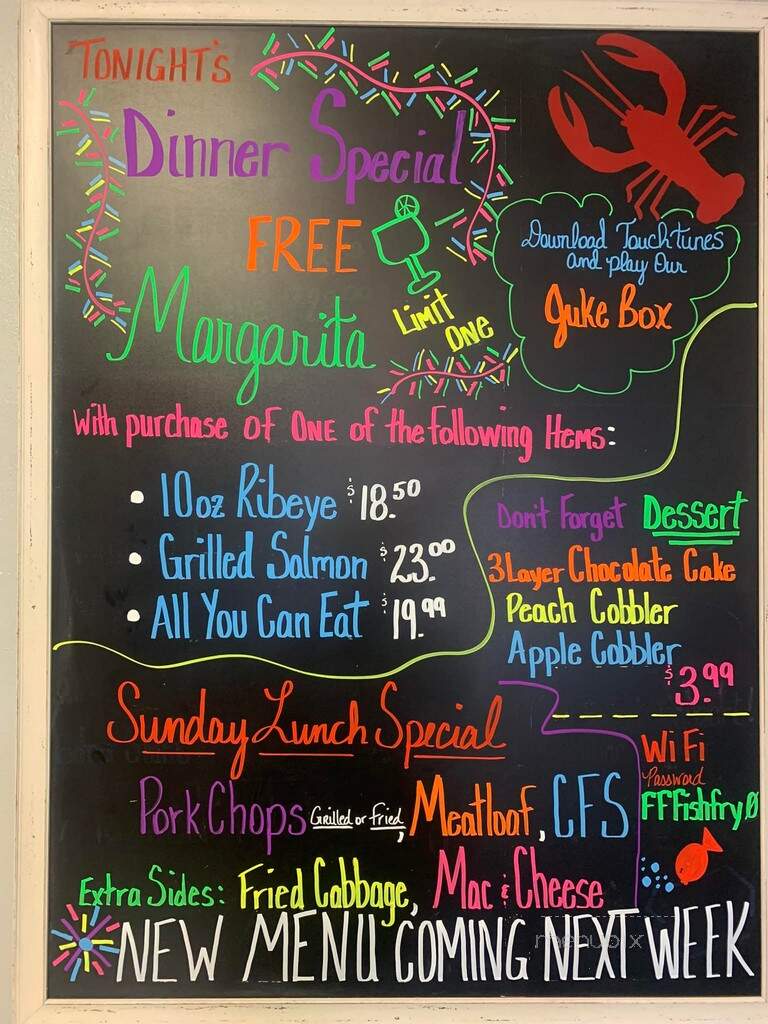 TONIGHT'S
Dinner Special
FREE
Margarita
Limit
ONE
Download Touchtunes
and play Our
Juke Box
With purchase OF ONE of the following Items:
• 10oz Ribeye $18.50
• Grilled Salmon $23.00
• All You Can Eat $19.99
Don't Forget Dessert
3 Layer Chocolate Cake
Peach Cobbler
Apple Cobbler
$3.99
Sunday Lunch Special
Pork Chops Grilled or Fried, Meatloaf, CFS
Extra Sides: Fried Cabbage, Mac & Cheese
WiFi
Password
FFFishfry0
NEW MENU COMING NEXT WEEK
menupix